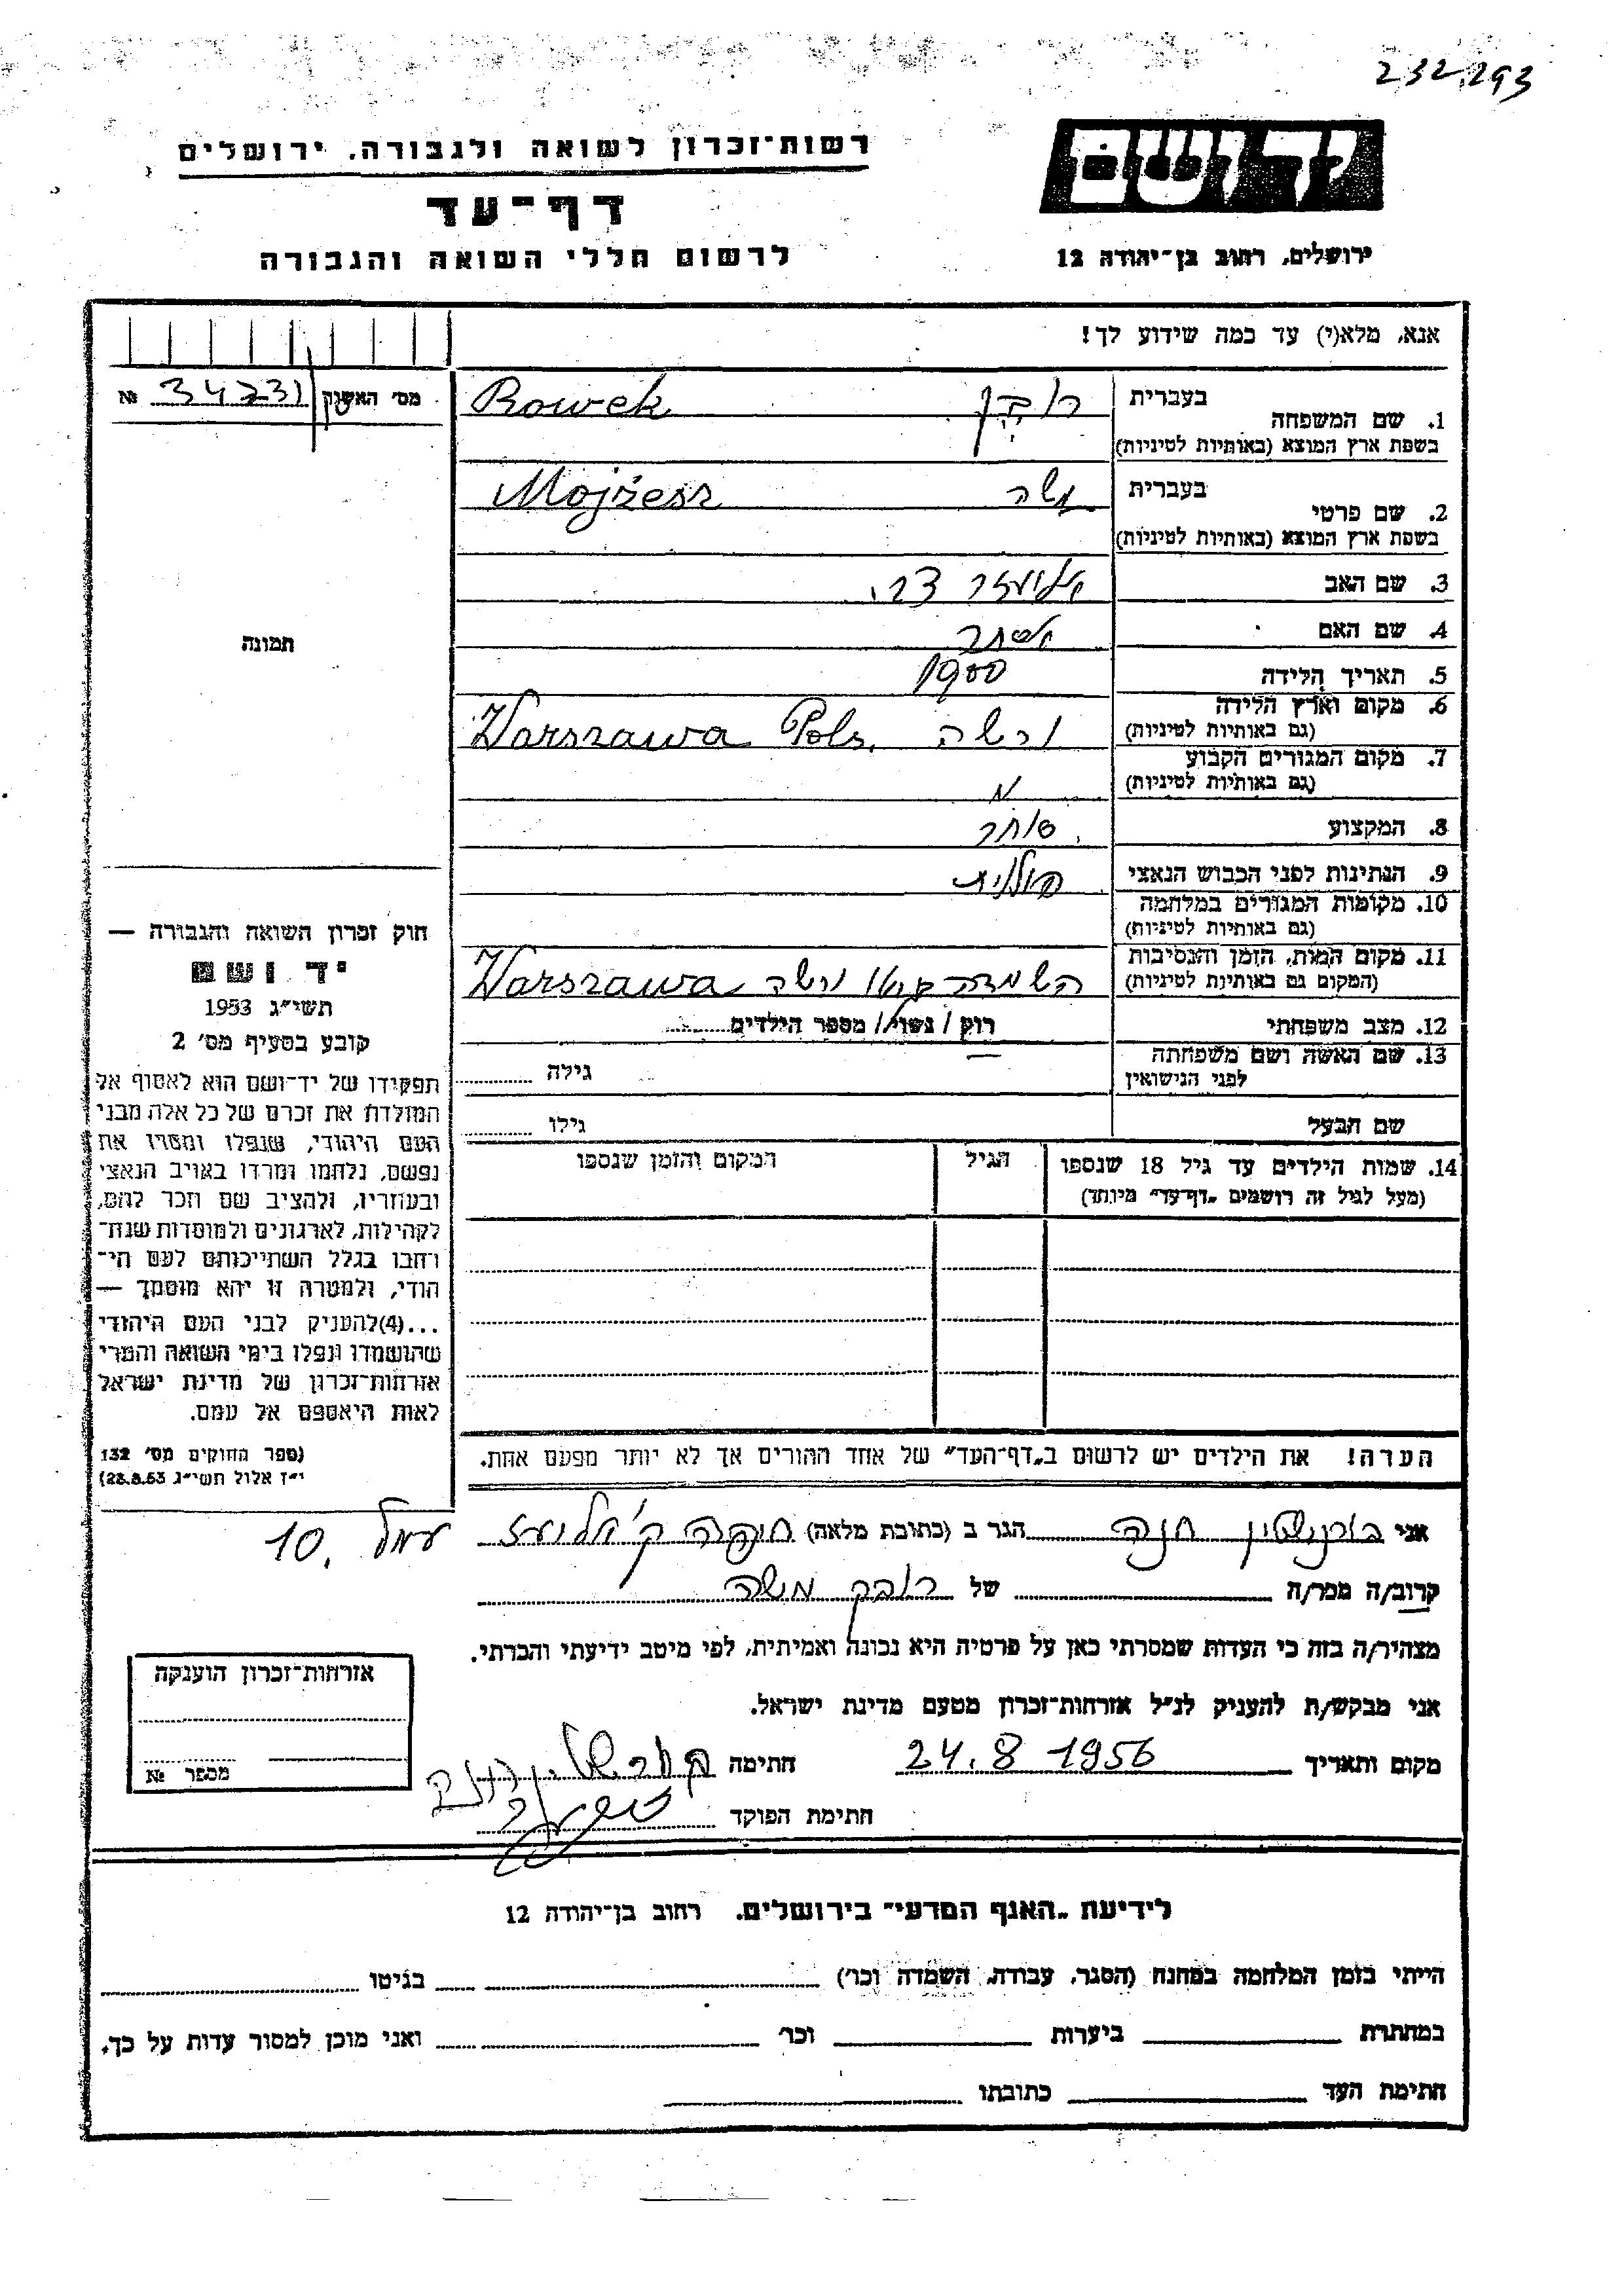 232.293
יד ושם
רשות־זכרון לשואה ולגבורה, ירושלים
דף־עד
לרשום חללי השואה והגבורה
ירושלים, רחוב בן־יהודה 12
אנא, מלא(י) עד כמה שידוע לך!
מס׳ האשנק 34731 №
1. שם המשפחה בעברית רובק Rowek
בשפת ארץ המוצא (באותיות לטיניות)
2. שם פרטי בעברית משה Mojżesz
בשפת ארץ המוצא (באותיות לטיניות)
3. שם האב אליעזר צבי
4. שם האם אסתר
5. תאריך הלידה 1900
6. מקום וארץ הלידה ורשה Warszawa Pols.
(גם באותיות לטיניות)
7. מקום המגורים הקבוע
(גם באותיות לטיניות)
8. המקצוע סוחר
9. הנתינות לפני הכבוש הנאצי פולנית
10. מקומות המגורים במלחמה
(גם באותיות לטיניות)
11. מקום המות, הזמן והנסיבות השמדה גיטו ורשה Warszawa
(המקום גם באותיות לטיניות)
12. מצב משפחתי רוק / נשוי / מספר הילדים
13. שם האשה ושם משפחתה
לפני הנישואין גילה
שם הבעל גילו
14. שמות הילדים עד גיל 18 שנספו הגיל המקום והזמן שנספו
(מעל לגיל זה רושמים „דף־עד״ מיוחד)
הערה! את הילדים יש לרשום ב„דף־העד״ של אחד ההורים אך לא יותר מפעם אחת.
תמונה
חוק זכרון השואה והגבורה —
יד ושם
תשי״ג 1953
קובע בסעיף מס׳ 2
תפקידו של יד־ושם הוא לאסוף אל
המולדת את זכרם של כל אלה מבני
העם היהודי, שנפלו ומסרו את
נפשם, נלחמו ומרדו באויב הנאצי
ובעוזריו, ולהציב שם וזכר להם,
לקהילות, לארגונים ולמוסדות שנח־
רבו בגלל השתייכותם לעם הי־
הודי, ולמטרה זו יהא מוסמך —
...(4)להעניק לבני העם היהודי
שהושמדו ונפלו בימי השואה והמרי
אזרחות־זכרון של מדינת ישראל
לאות היאספם אל עמם.
(ספר החוקים מס׳ 132
י״ז אלול תשי״ג 28.8.53)
אני בורנשטין חנה הגר ב (כתובת מלאה) חיפה ק׳ אליעזר עמל 10.
קרוב/ה מכר/ה של רובק משה
מצהיר/ה בזה כי העדות שמסרתי כאן על פרטיה היא נכונה ואמיתית, לפי מיטב ידיעתי והכרתי.
אני מבקש/ת להעניק לנ״ל אזרחות־זכרון מטעם מדינת ישראל.
מקום ותאריך 24.8 1956 חתימה
חתימת הפוקד
אזרחות־זכרון הוענקה
מספר №
לידיעת „האגף המדעי״ בירושלים, רחוב בן־יהודה 12
הייתי בזמן המלחמה במחנה (הסגר, עבודה, השמדה וכו׳) בגיטו
במחתרת ביערות וכו׳ ואני מוכן למסור עדות על כך.
חתימת העד כתובתו